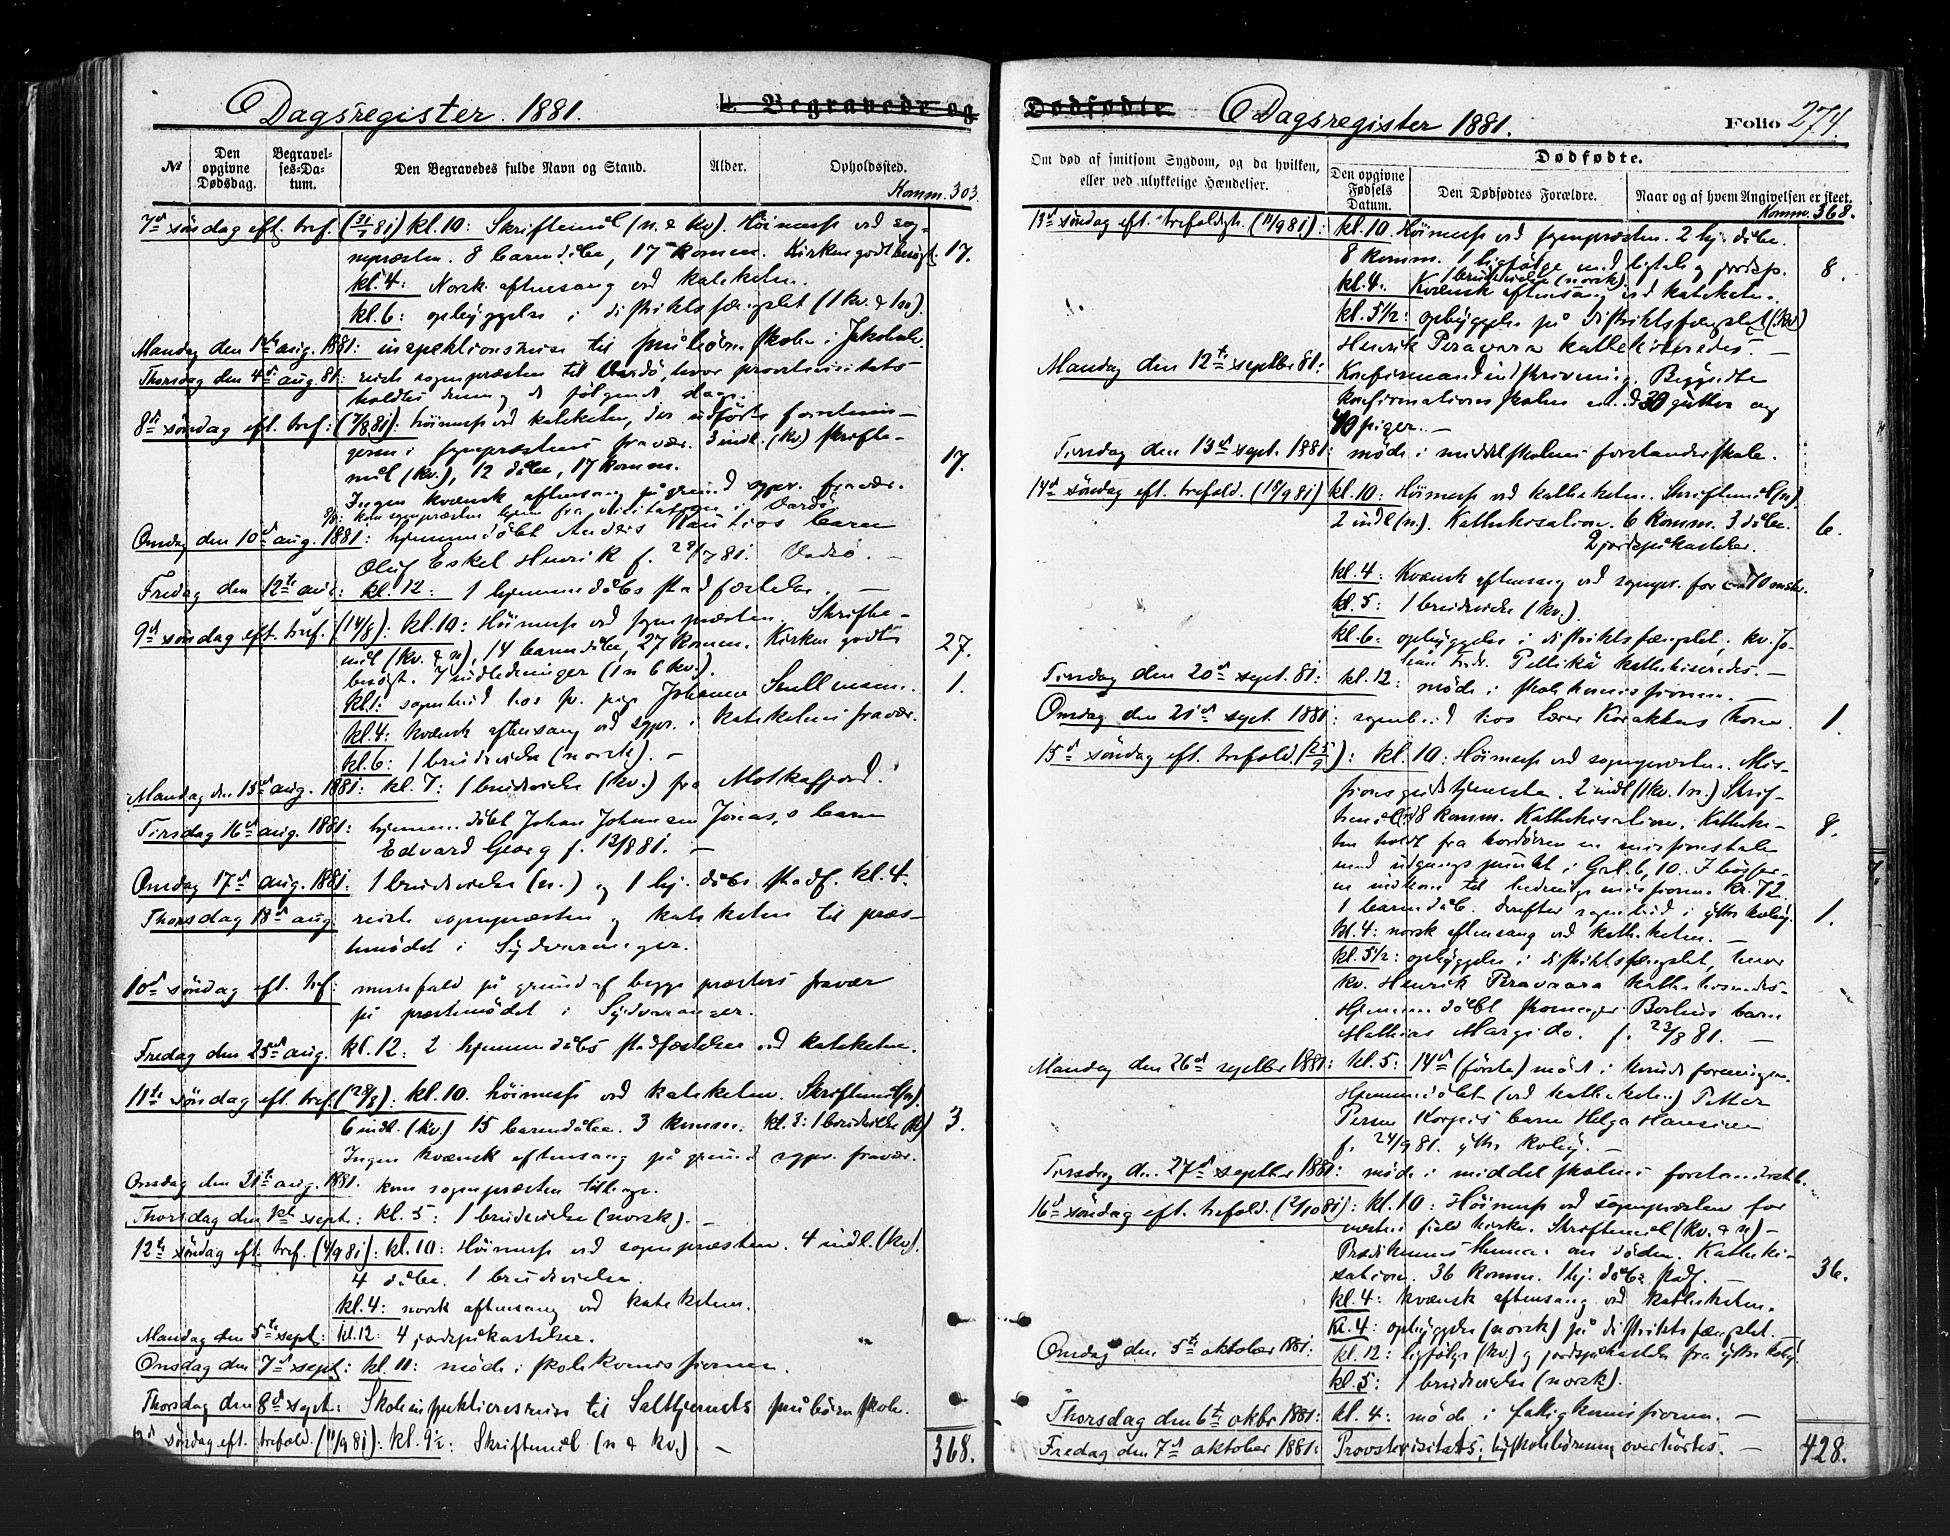 Dagsregister 1881.
E. Begravede og
№
Den opgivne Dødsdag.
Begravelses-Datum.
Den Begravedes fulde Navn og Stand.
Alder.
Opholdssted.
Komm. 303.
7d søndag eft. tref. (31/7 81) kl. 10: Skriftemål (n. & kv). Høimesse ved sog-
nepræsten. 8 barnedåbe, 17 komm. Kirken godt besøgt. 17.
kl. 4: Norsk aftensang ved kateketen.
kl. 6: opbyggelse i distriktsfængslet (1 kv. & 1 n).
Mandag den 1ste aug. 1881: inspektionsreise til småbørnsskolen i Jakobselv.
Thorsdag den 4de aug. 81: reiste sognepræsten til Vardö, hvor provstevisitats
holdtes den og de følgende dage.
8de søndag eft. tref: (7/8 81): høimesse ved kateketen, der udførte forretnin-
gerne i sognepræstens fravær. 3 indl. (kv) Skrifte-
mål (kv), 12 dåbe, 17 komm. 17.
Ingen kvænsk aftensang på grund sgpr. fravær.
9/8: kom sognepræsten hjem fra visitatsen i Vardö.
Onsdag den 10de aug. 1881: hjemmedøbt Anders Rautios barn
Oluf Eskel Henrik f. 29/7 81. Vadsö. —
Fredag den 12te aug: kl. 12: 1 hjemmedåbs stadfæstelse. —
9de søndag eft. tref. (14/8): kl. 10: Høimesse ved sognepræsten. Skrifte-
mål (kv. & n), 14 barnedåbe, 27 komm. Kirken godt 27.
besøgt. 7 indledninger (1 n 6 kv.).
kl. 1: sognebud hos p. pige Johanne 1.
kl. 4: kvænsk aftensang ved sgpr. i kateketens fravær.
kl. 6: 1 brudevielse (norsk). —
Mandag den 15de aug. 1881: kl. 7: 1 brudevielse (kv.) fra Motkafjord.
Tirsdag 16de aug. 1881: hjemmedøbt Johan Johansen Jonas,s barn
Edvard Georg f. 12/8 81. —
Onsdag 17de aug. 1881: 1 brudevielse (n.) og 1 hj. dåbs stadf. kl. 4.
Thorsdag 18de aug: reiste sognepræsten og kateketen til præs-
temødet i Sydvaranger.
10de søndag eft. tref: messefald på grund af begge præsters fravær
på præstemødet i Sydvaranger.
Fredag den 25de aug. kl. 12: 2 hjemmedåbs stadfæstelser ved kateketen.
11te søndag eft. tref. (28/8): kl. 10. høimesse ved kateketen. Skriftemål (n).
6 indl. (kv) 15 barnedåbe. 3 komm. kl. 3: 1 brudevielse (k) 3.
Ingen kvænsk aftensang på grund sgpr. fravær.
Onsdag den 31te aug. 1881. kom sognepræsten tilbage.
Thorsdag den 1ste sept.: kl. 5: 1 brudevielse (norsk). —
12te søndag eft. tref. (4/9 81): kl. 10: Høimesse ved sognepræsten. 4 indl. (kv).
4 dåbe. 1 brudevielse.
kl. 4: norsk aftensang ved kateketen.
Mandag den 5te sept: kl. 12: 4 jordspåkastelse.
Onsdag den 7de sept: kl. 11: møde i skolekommissionen.
Thorsdag den 8de sept: Skoleinspektionsreise til Saltkjernets småbørnsskole.
13de søndag eft. trefold. (11/9 81): kl. 9½: Skriftemål (n & kv.) — 368.
Dødfødte
Dagsregister 1881.
Folio 274.
Om død af smitsom Sygdom, og da hvilken, eller ved ulykkelige Hændelser.
Dødfødte.
Den opgivne Fødsels Datum.
Den Dødfødtes Forældre.
Naar og af hvem Angivelsen er skeet.
Komm. 368.
13de søndag eft. trefoldigh. (11/9 81): kl. 10. Høimesse ved sognepræsten. 2 hj. dåbe.
8 komm. 1 ligfølge med ligtale og jordsp. 8.
1 brudevielse (norsk)
kl. 4. Kvænsk aftensang ved kateketen.
kl. 5½: opbyggelse på distriktsfængslet (kv)
Henrik Peravara kathekiseredes. —
Mandag den 12te septbr 81: Konfirmandindskrivning. Begyndte
konfirmationsskolen med 30 gutter og
40 piger. —
Tirsdag den 13de sept. 1881: møde i middelskolens forstanderskab.
14de søndag eft. trefold. (18/9 81) kl. 10: Høimesse ved katheketen. Skriftemål (n).
2 indl (n). Kathekisation. 6 komm. 3 dåbe. 6.
2 jordspåkastelser.
kl. 4: Kvænsk aftensang ved sognepr. for
kl. 5: 1 brudevielse (kv).
kl. 6: opbyggelse i distriktsfængslet; kv. Jo-
han Fredr. Pellikä kathekiseredes. —
Tirsdag den 20de sept. 81: kl. 12: møde i skolekomissionen. —
Onsdag den 21de sept. 1881: sognebud hos Lærer Korakkas kone. 1.
15de søndag eft. trefold. (25/9): kl. 10: Høimesse ved sognepræsten. Mis-
sionsgudstjeneste. 2 indl (1 kv. 1 n.) Skrif-
temål 8 komm. Kathekisation. Katheke- 8.
ten holdt fra kordøren en missionstale
med udgangspunkt i Grl. 6, 10. I bøsser-
ne indkom til hedningemissionen Kr. 72.
1 barnedåb. Derefter sognebud i ytre kvby. 1.
kl. 4: norsk aftensang ved katheketen. —
kl. 5½: opbyggelse i distriktsfængslet, hvor
kv. Henrik Peravaara kathekiseredes.
Hjemmedøbt barn
Mathias Margido. f. 23/8 81. —
Mandag den 26de septbr 1881: kl. 5: 14de (første) møde i kvindeforeningen.
Hjemmedøbt (ved katheketen) Petter
Persen Korpis barn Helga Hansine
f. 24/9 81. ytre kvby. —
Tirsdag den 27de septbr 1881: møde i middelskolens forstanderskab.
16de søndag eft. trefold. (2/10 81): kl. 10: Høimesse ved sognepræsten for
næsten fuld kirke. Skriftemål (kv. & n) —
Prædikenens themaer om døden. Katheki-
sation. 36 komm. 1 hj. dåbs stadf. — 36.
kl. 4: kvænsk aftensang ved katheketen.
kl. 4: opbyggelse (norsk) på distriktsfængslet.
Onsdag den 5te oktober 1881: kl. 12: ligfølge (kv.) og jordspåkastelse fra ytre kvby.
kl. 5: 1 brudevielse (norsk).
Thorsdag den 6te oktbr 1881: kl. 4: møde i fattigkomissionen. —
Fredag den 7de oktober 1881: Provstevisitats; byskolebørnene overhørtes. — 428.